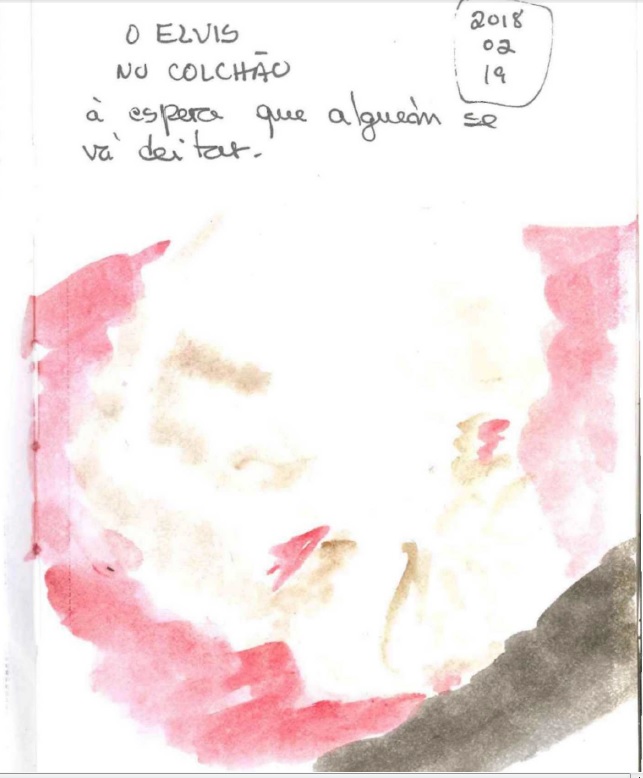 O ELVIS
NO COLCHÃO
à espera que alguém se
vá deitar.
2018
02
19